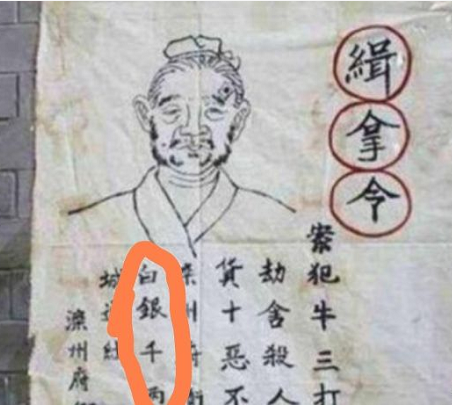 緝拿令
案犯牛三打
劫舍殺人
貨十惡不
滦州府衙
白銀千兩
城
滦州府